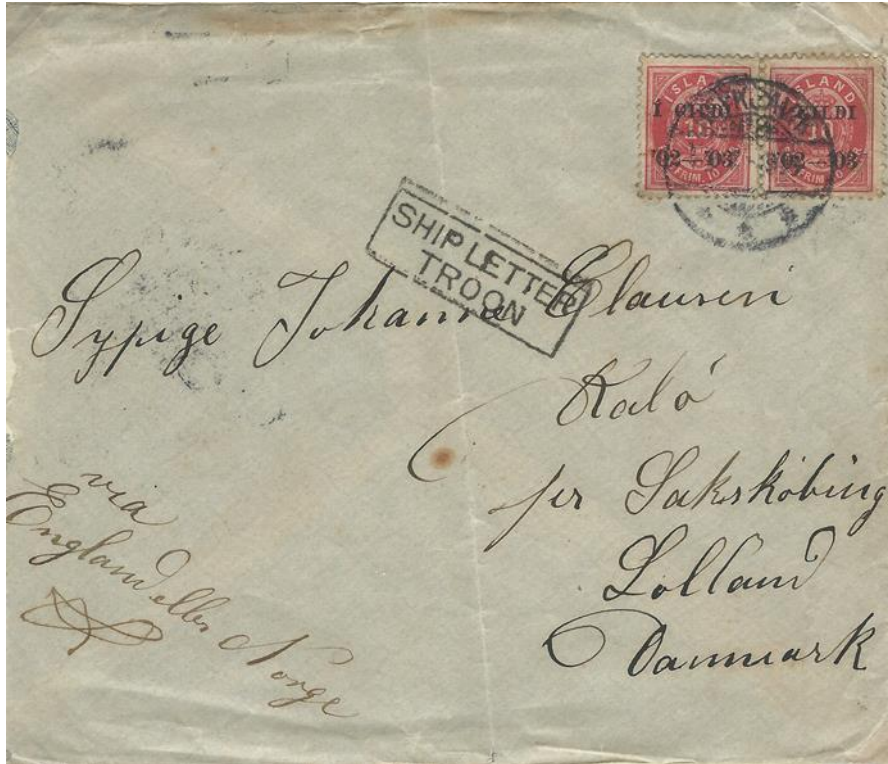 ISLAND
Í GILDI
10
'02—'03
FRIM. 10
ISLAND
Í GILDI
10
'02—'03
FRIM. 10
SHIP LETTER
TROON
Sypige Johanne Clausen
Kalö
per Saksköbing
Lolland
Danmark
via
England eller Norge